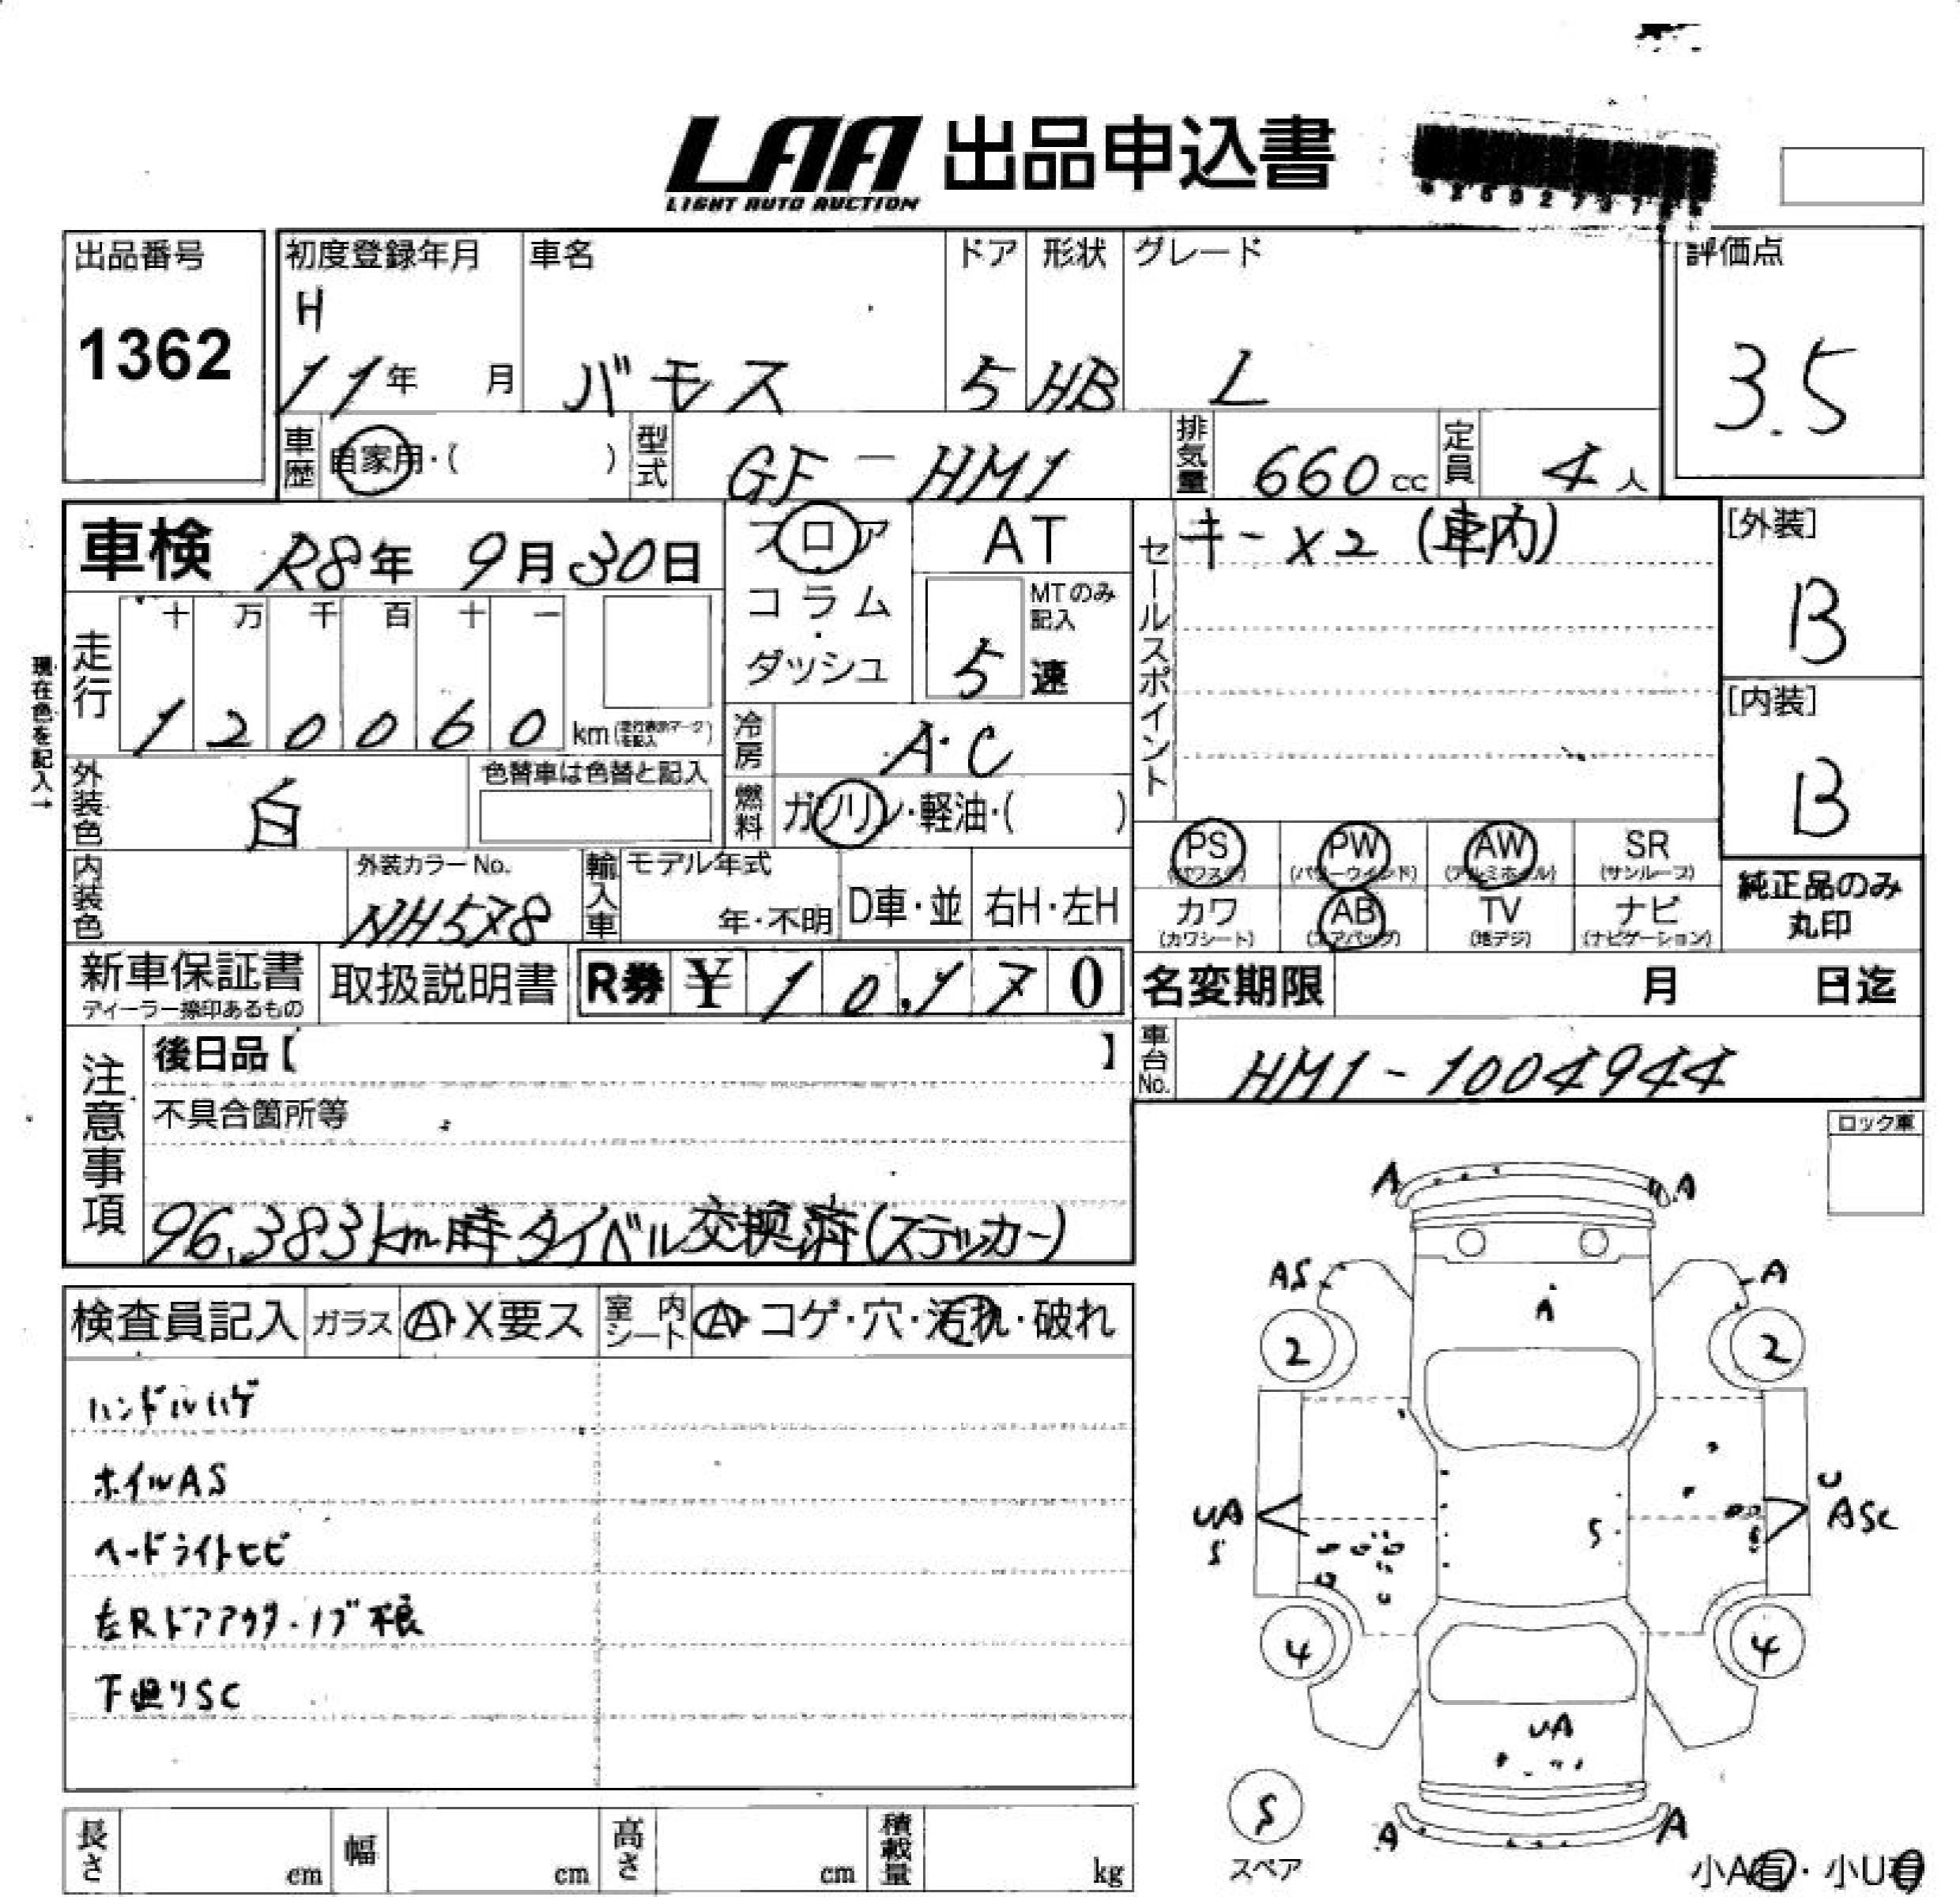 LAA 出品申込書
LIGHT AUTO AUCTION
出品番号
1362
初度登録年月
H
11年 月
車名
バモス
ドア
5
形状
HB
グレード
L
評価点
3.5
車歴
自家用・( )
型式
GF-HM1
排気量
660cc
定員
4人
車検 R8年 9月30日
フロア
コラム
ダッシュ
AT
MTのみ
記入
5速
セールスポイント
キー×2 (車内)
[外装]
B
[内装]
B
現在色を記入→
走行
十 万 千 百 十 一
1 2 0 0 6 0 km
冷房
A・C
外装色
白
色替車は色替と記入
燃料
ガソリン・軽油・( )
PS PW AW SR
(パワステ) (パワーウインド) (アルミホイル) (サンルーフ)
カワ AB TV ナビ
(カワシート) (エアバッグ) (地デジ) (ナビゲーション)
純正品のみ
丸印
内装色
外装カラーNo.
NH578
輸入車
モデル年式
年・不明
D車・並
右H・左H
新車保証書
ディーラー捺印あるもの
取扱説明書
R券 ¥ 1 0,1 7 0
名変期限 月 日迄
車台No.
HM1-1004944
注意事項
後日品【 】
不具合箇所等
96,383km時タイベル交換済(ステッカー)
ロック車
検査員記入
ガラス
A・X要ス
室内シート
A・コゲ・穴・汚れ・破れ
ハンドルハゲ
ホイルAS
ヘードライトヒビ
左Rドアアウターノブ不良
下廻りSC
A A
AS A
A
2 2
UA
S
S
U
ASC
4 4
UA
S
スペア
A A
小A有・小U有
長さ cm
幅 cm
高さ cm
積載量 kg